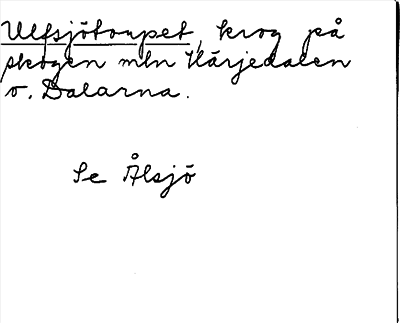 Ulfsjötorpet, krog på
skogen mln Härjedalen
o. Dalarna.
Se Ålsjö